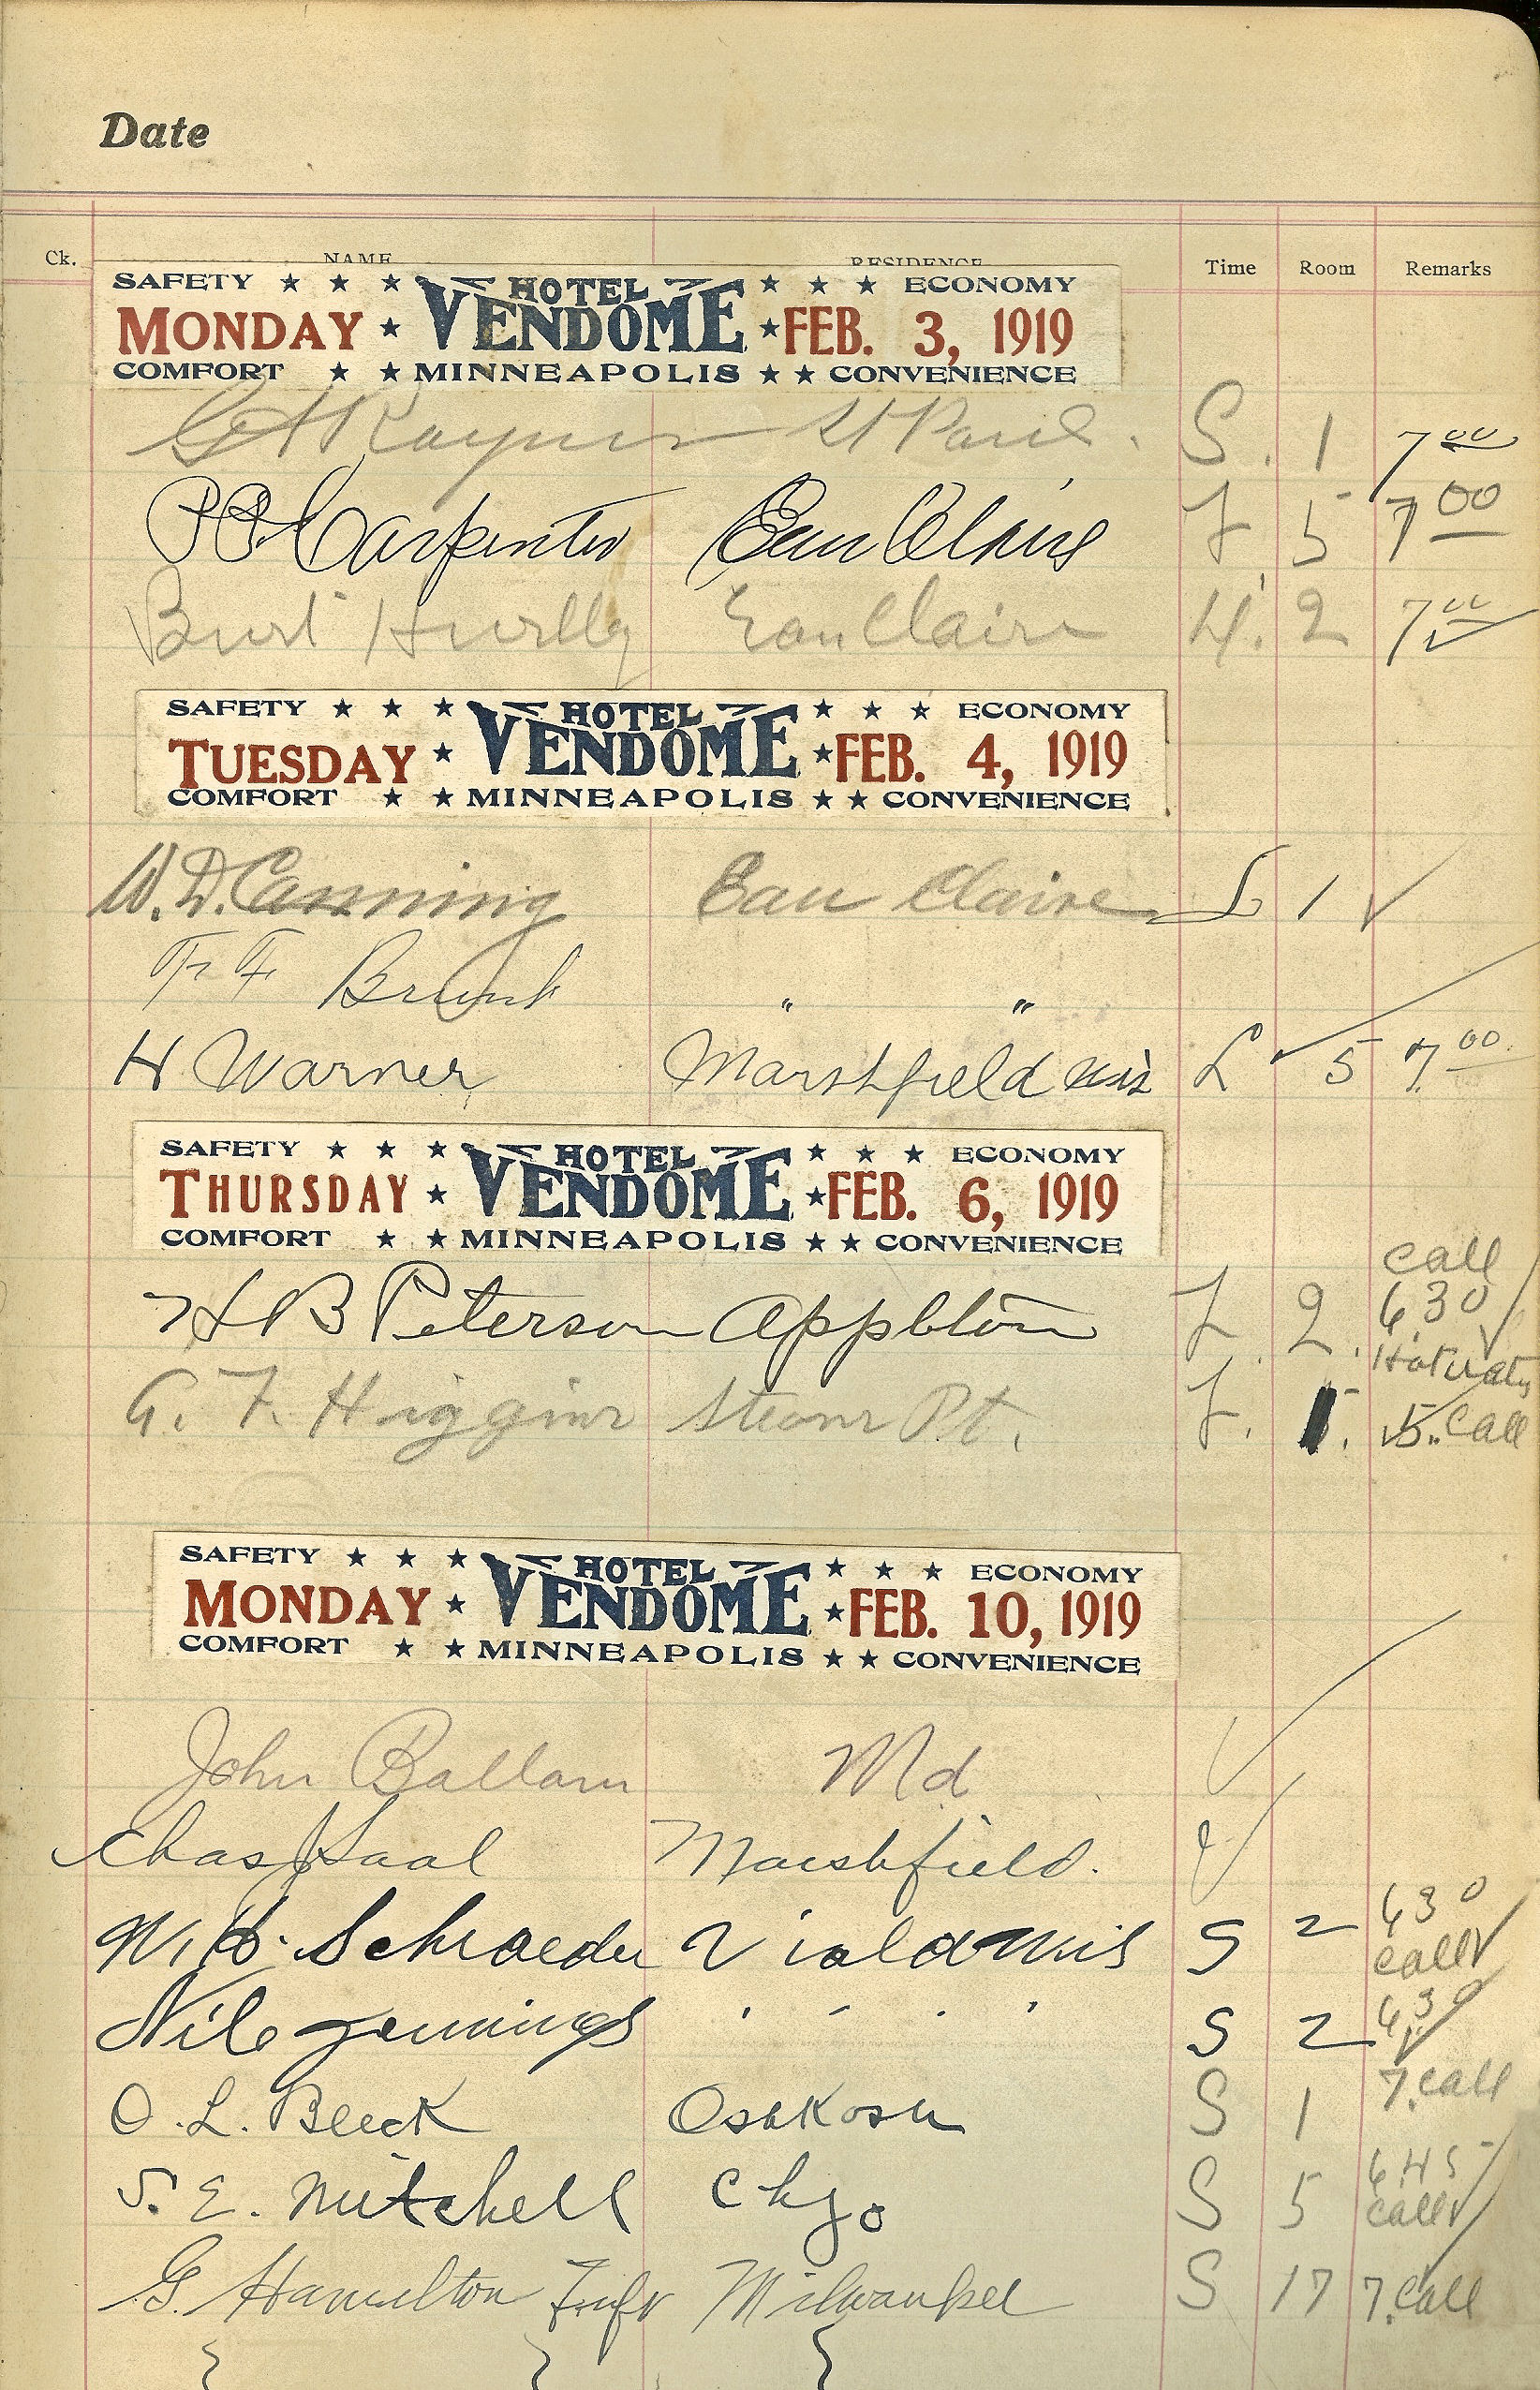 Date
Ck. NAME RESIDENCE Time Room Remarks
SAFETY ★ ★ ★ HOTEL ★ ★ ★ ECONOMY
MONDAY ★ VENDOME ★ FEB. 3, 1919
COMFORT ★ ★ MINNEAPOLIS ★ ★ CONVENIENCE
Rayner St Paul. S. 1 7 00
Carpenter Eau Claire 5 7 00
Burt Eau Claire H. 2 7 00
SAFETY ★ ★ ★ HOTEL ★ ★ ★ ECONOMY
TUESDAY ★ VENDOME ★ FEB. 4, 1919
COMFORT ★ ★ MINNEAPOLIS ★ ★ CONVENIENCE
W. D. Canning Eau Claire 1 ✓
F F " "
H Warner Marshfield Wis L ✓ 5 7 00
SAFETY ★ ★ ★ HOTEL ★ ★ ★ ECONOMY
THURSDAY ★ VENDOME ★ FEB. 6, 1919
COMFORT ★ ★ MINNEAPOLIS ★ ★ CONVENIENCE
call
H B Peterson Appleton 2. 630
G. F. Higgins Stevens Pt. 5. call
SAFETY ★ ★ ★ HOTEL ★ ★ ★ ECONOMY
MONDAY ★ VENDOME ★ FEB. 10, 1919
COMFORT ★ ★ MINNEAPOLIS ★ ★ CONVENIENCE
John Ballam Md ✓
Chas Saal Marshfield. ✓
W. H. Schroeder Viola Wis S 2 630
call ✓
Nile Jennings " " S 2 630
O. L. Beeck Oshkosh S 1 7. call
S. E. Mitchell Chgo S 5 645
call ✓
G. Hamilton Milwaukee S 17 7. call